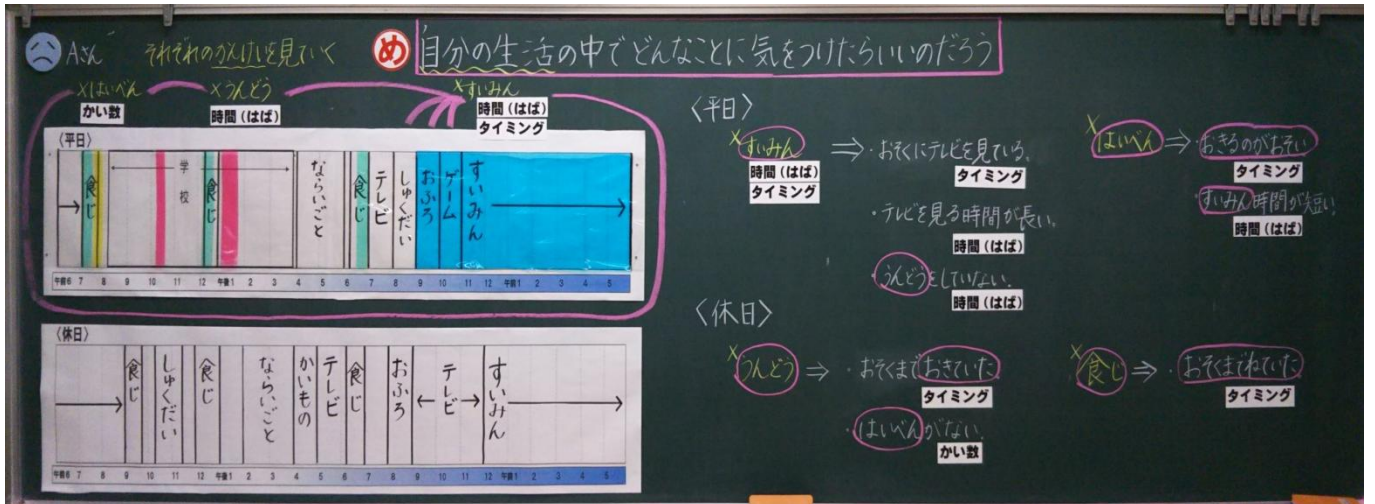 Aさん それぞれのかんけいを見ていく
め 自分の生活の中でどんなことに気をつけたらいいのだろう
×はいべん ×うんどう ×すいみん
かい数 時間(はば) 時間(はば)
タイミング
〈平日〉
食じ 学校 食じ ならいごと 食じ テレビ しゅくだい おふろ ゲーム すいみん
午前6 7 8 9 10 11 12 午後1 2 3 4 5 6 7 8 9 10 11 12 午前1 2 3 4 5
〈休日〉
食じ しゅくだい 食じ ならいごと かいもの テレビ 食じ おふろ テレビ すいみん
午前6 7 8 9 10 11 12 午後1 2 3 4 5 6 7 8 9 10 11 12 午前1 2 3 4 5
〈平日〉
×すいみん ⇒ ・おそくにテレビを見ている。
時間(はば) タイミング
タイミング
・テレビを見る時間が長い。
時間(はば)
・うんどうをしていない。
時間(はば)
×はいべん ⇒ ・おきるのがおそい
タイミング
・すいみん時間が短い
時間(はば)
〈休日〉
×うんどう ⇒ ・おそくまでおきていた
タイミング
・はいべんがない。
かい数
×食じ ⇒ ・おそくまでねていた
タイミング